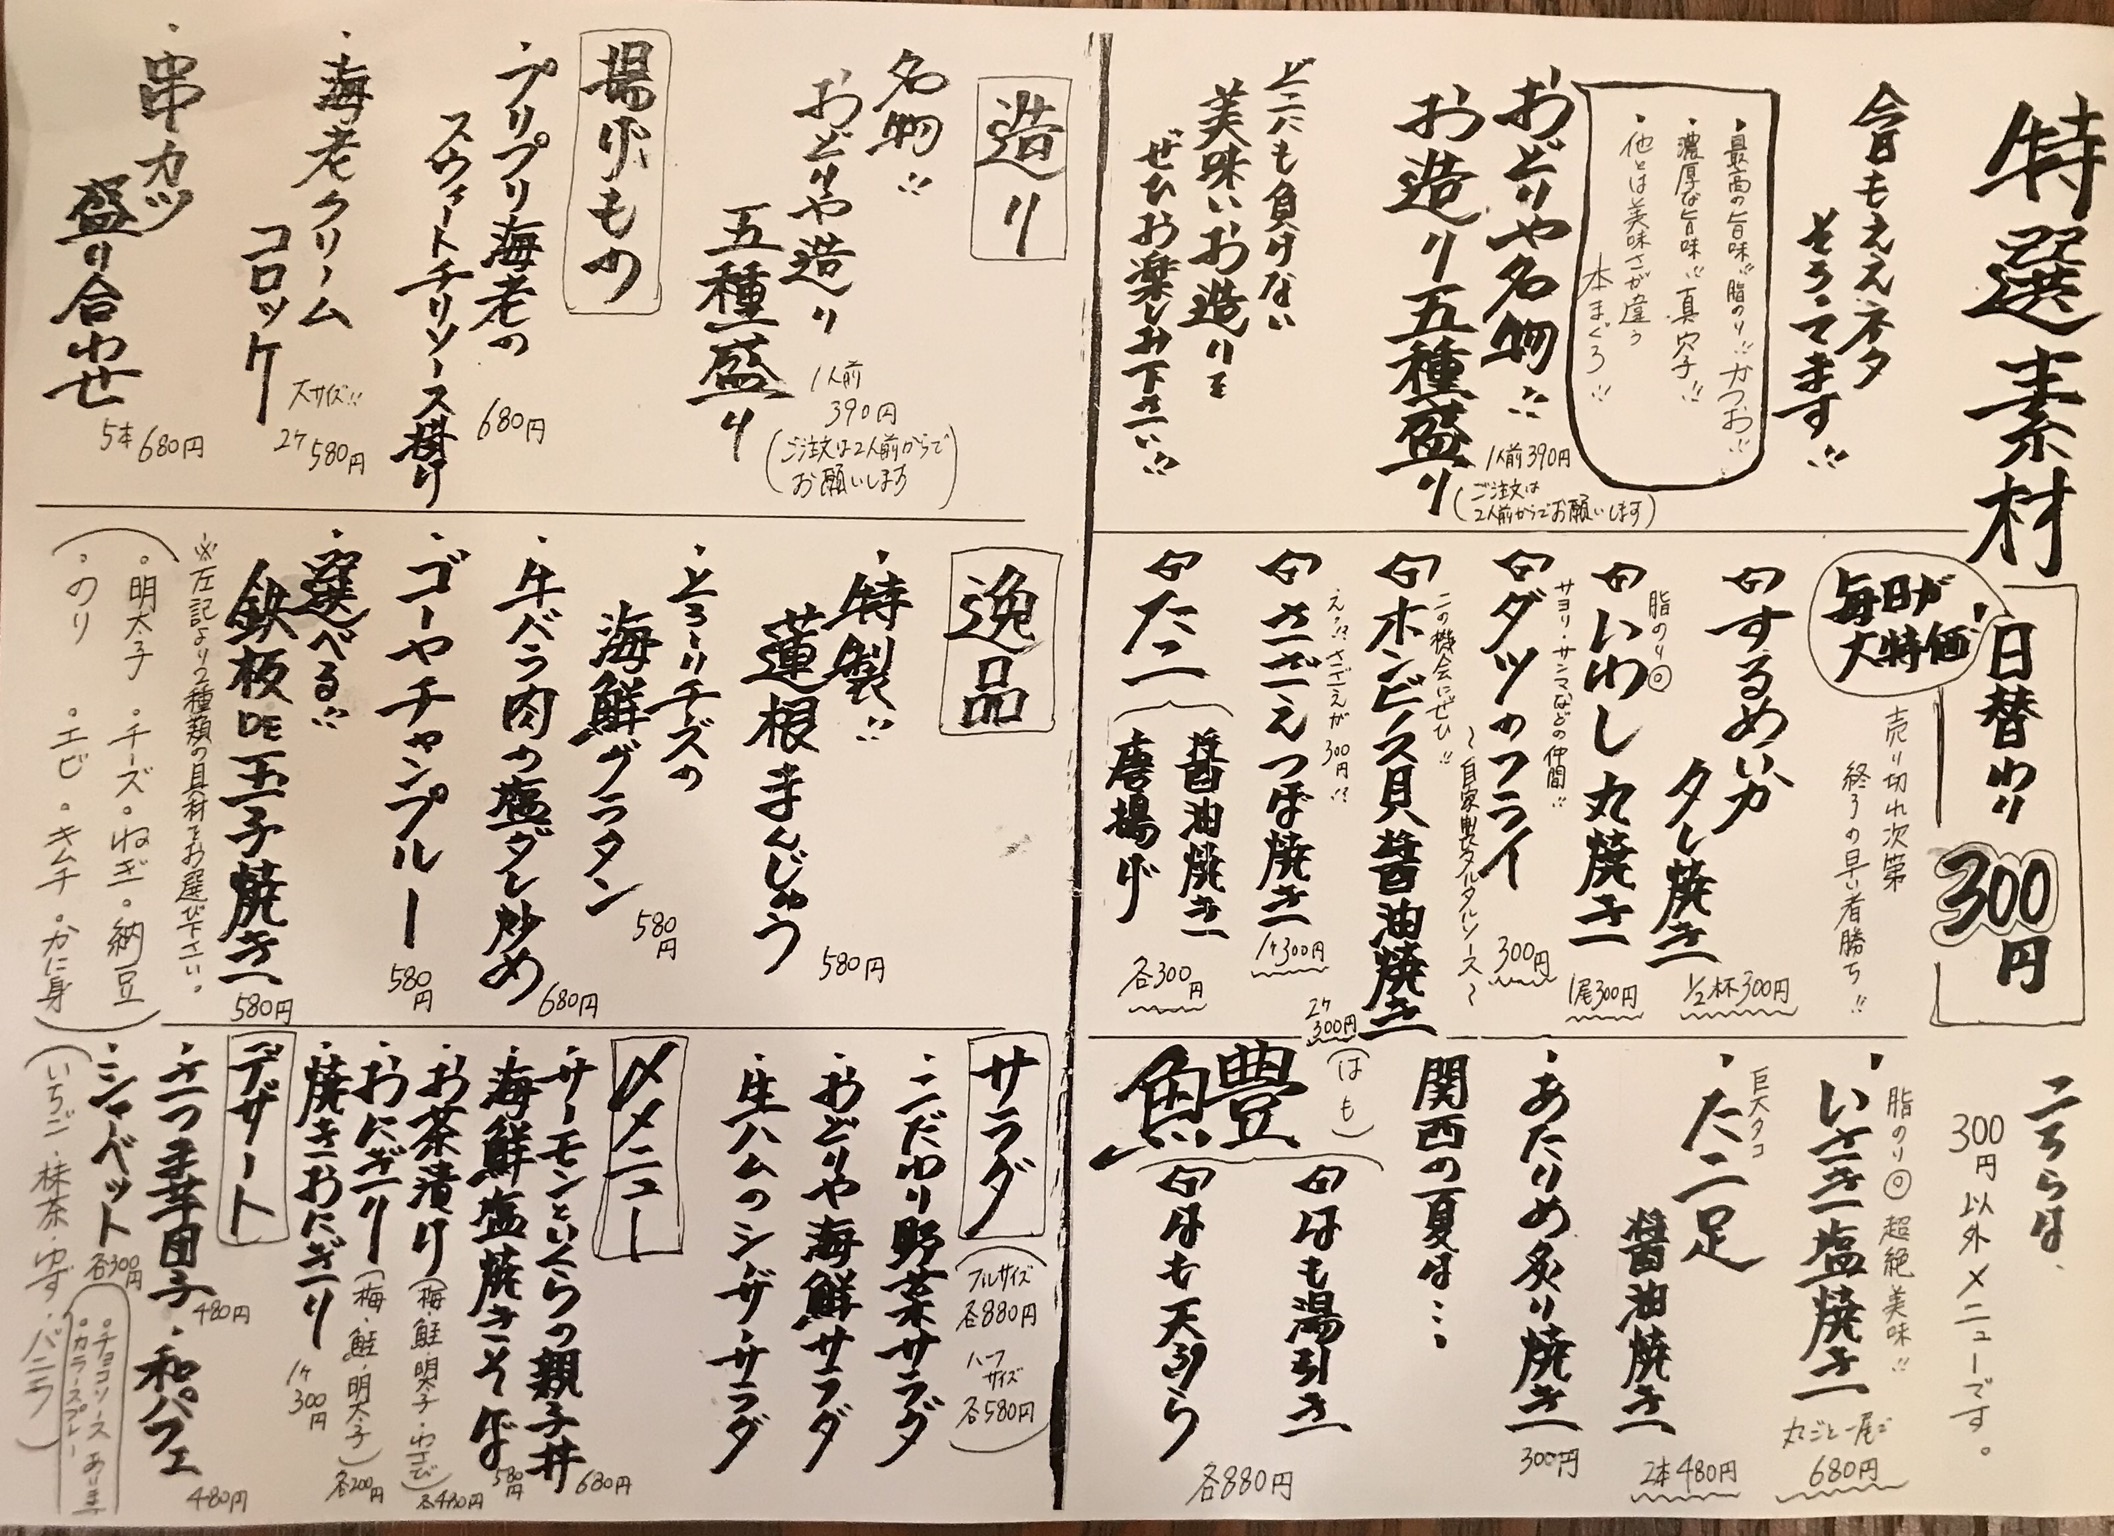 特選素材
今日もええネタ
そろてます!!
・最高の旨味!!脂のり!!かつお!!
・濃厚な旨味!!真穴子!!
・他とは美味さが違う
本まぐろ!!
おどりや名物!!
お造り五種盛り
1人前390円
(ご注文は
2人前からでお願いします)
どこにも負けない
美味いお造りを
ぜひお楽しみ下さい!!
日替わり300円
毎日が
大特価!
売り切れ次第
終うの早い者勝ち!!
するめいか
タレ焼き
1/2杯300円
脂のり◎
いわし丸焼き
1尾300円
サヨリ・サンマなどの仲間!!
ダツのフライ
300円
〜自家製タルタルソース〜
この機会にぜひ!!
ホンビノス貝醤油焼き
2ケ
300円
え!?さざえが300円!?
さざえつぼ焼き
1ケ300円
たこ
醤油焼き
唐揚げ
各300円
こちらは、
300円以外メニューです。
脂のり◎超絶美味!!
・いさき塩焼き
丸ごと一尾で
680円
巨大タコ
・たこ足
醤油焼き
2本480円
・あたりめ炙り焼き
300円
関西の夏は…
(はも)
魚豊
はも湯引き
はも天ぷら
各880円
造り
名物!!
おどりや造り
五種盛り
1人前
390円
(ご注文は2人前からで
お願いします)
揚げもの
・プリプリ海老の
スウィートチリソース掛け
680円
・海老クリーム
コロッケ
大サイズ!!
2ケ580円
・串カツ
盛り合わせ
5本680円
逸品
・特製!!
蓮根まんじゅう
580円
・とろーりチーズの
海鮮グラタン
580円
・牛バラ肉の塩ダレ炒め
680円
・ゴーヤチャンプルー
580円
・選べる!!
鉄板DE玉子焼き
580円
※左記より2種類の具材をお選び下さい。
(・明太子・チーズ・ねぎ・納豆
・のり・エビ・キムチ・かに身)
サラダ
(フルサイズ
各880円
ハーフ
サイズ
各580円)
・こだわり野菜サラダ
・おどりや海鮮サラダ
・生ハムのシーザーサラダ
〆メニュー
・サーモンといくらの親子丼
680円
・海鮮塩焼きそば
580円
・お茶漬け
(梅・鮭・明太子・わさび)
各480円
・おにぎり
(梅・鮭・明太子)
各200円
・焼きおにぎり
1ケ
300円
デザート
・さつま芋団子
480円
・和パフェ
480円
・シャーベット
各300円
(いちご・抹茶・ゆず・バニラ)
・チョコソース
・カラースプレー
あります